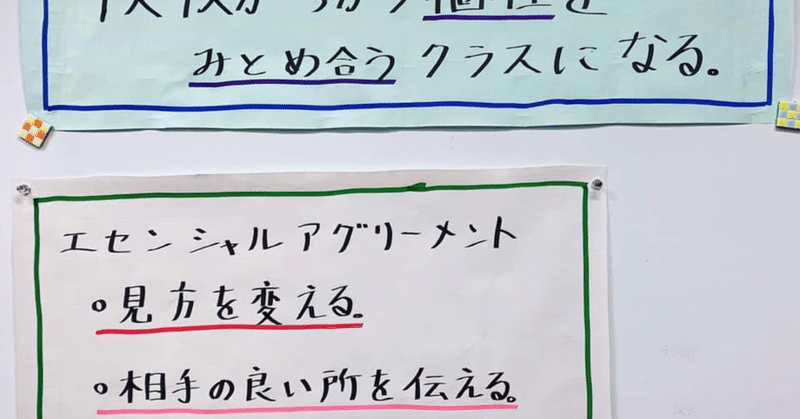 個性を
みとめ合うクラスになる。
エセンシャルアグリーメント
。見方を変える。
。相手の良い所を伝える。